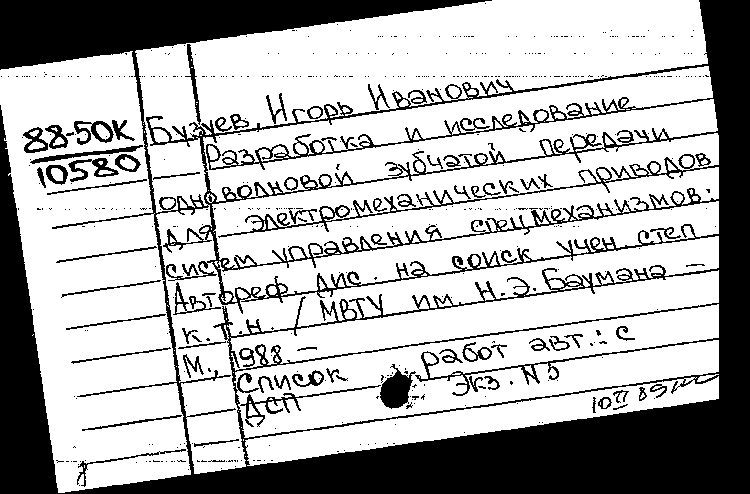 88-50К
10580
Бузуев, Игорь Иванович
Разработка и исследование
одноволновой зубчатой передачи
для электромеханических приводов
систем управления спец.механизмов:
Автореф. дис. на соиск. учен. степ
к.т.н. / МВТУ им. Н.Э.Баумана –
М., 1988. –
Список работ авт.: с
ДСП Экз. N5